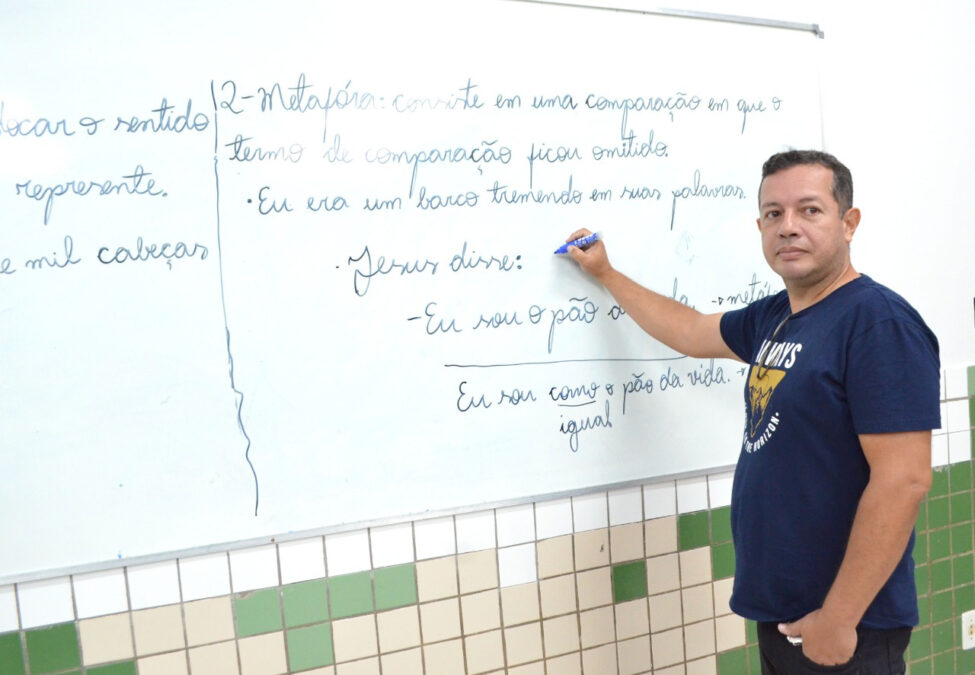 locar o sentido
represente.
e mil cabeças
2-Metafóra: consiste em uma comparação em que o
termo de comparação ficou omitido.
• Eu era um barco tremendo em suas palavras.
• Jesus disse:
- Eu sou o pão
Eu sou como o pão da vida.
igual
THE HORIZON.